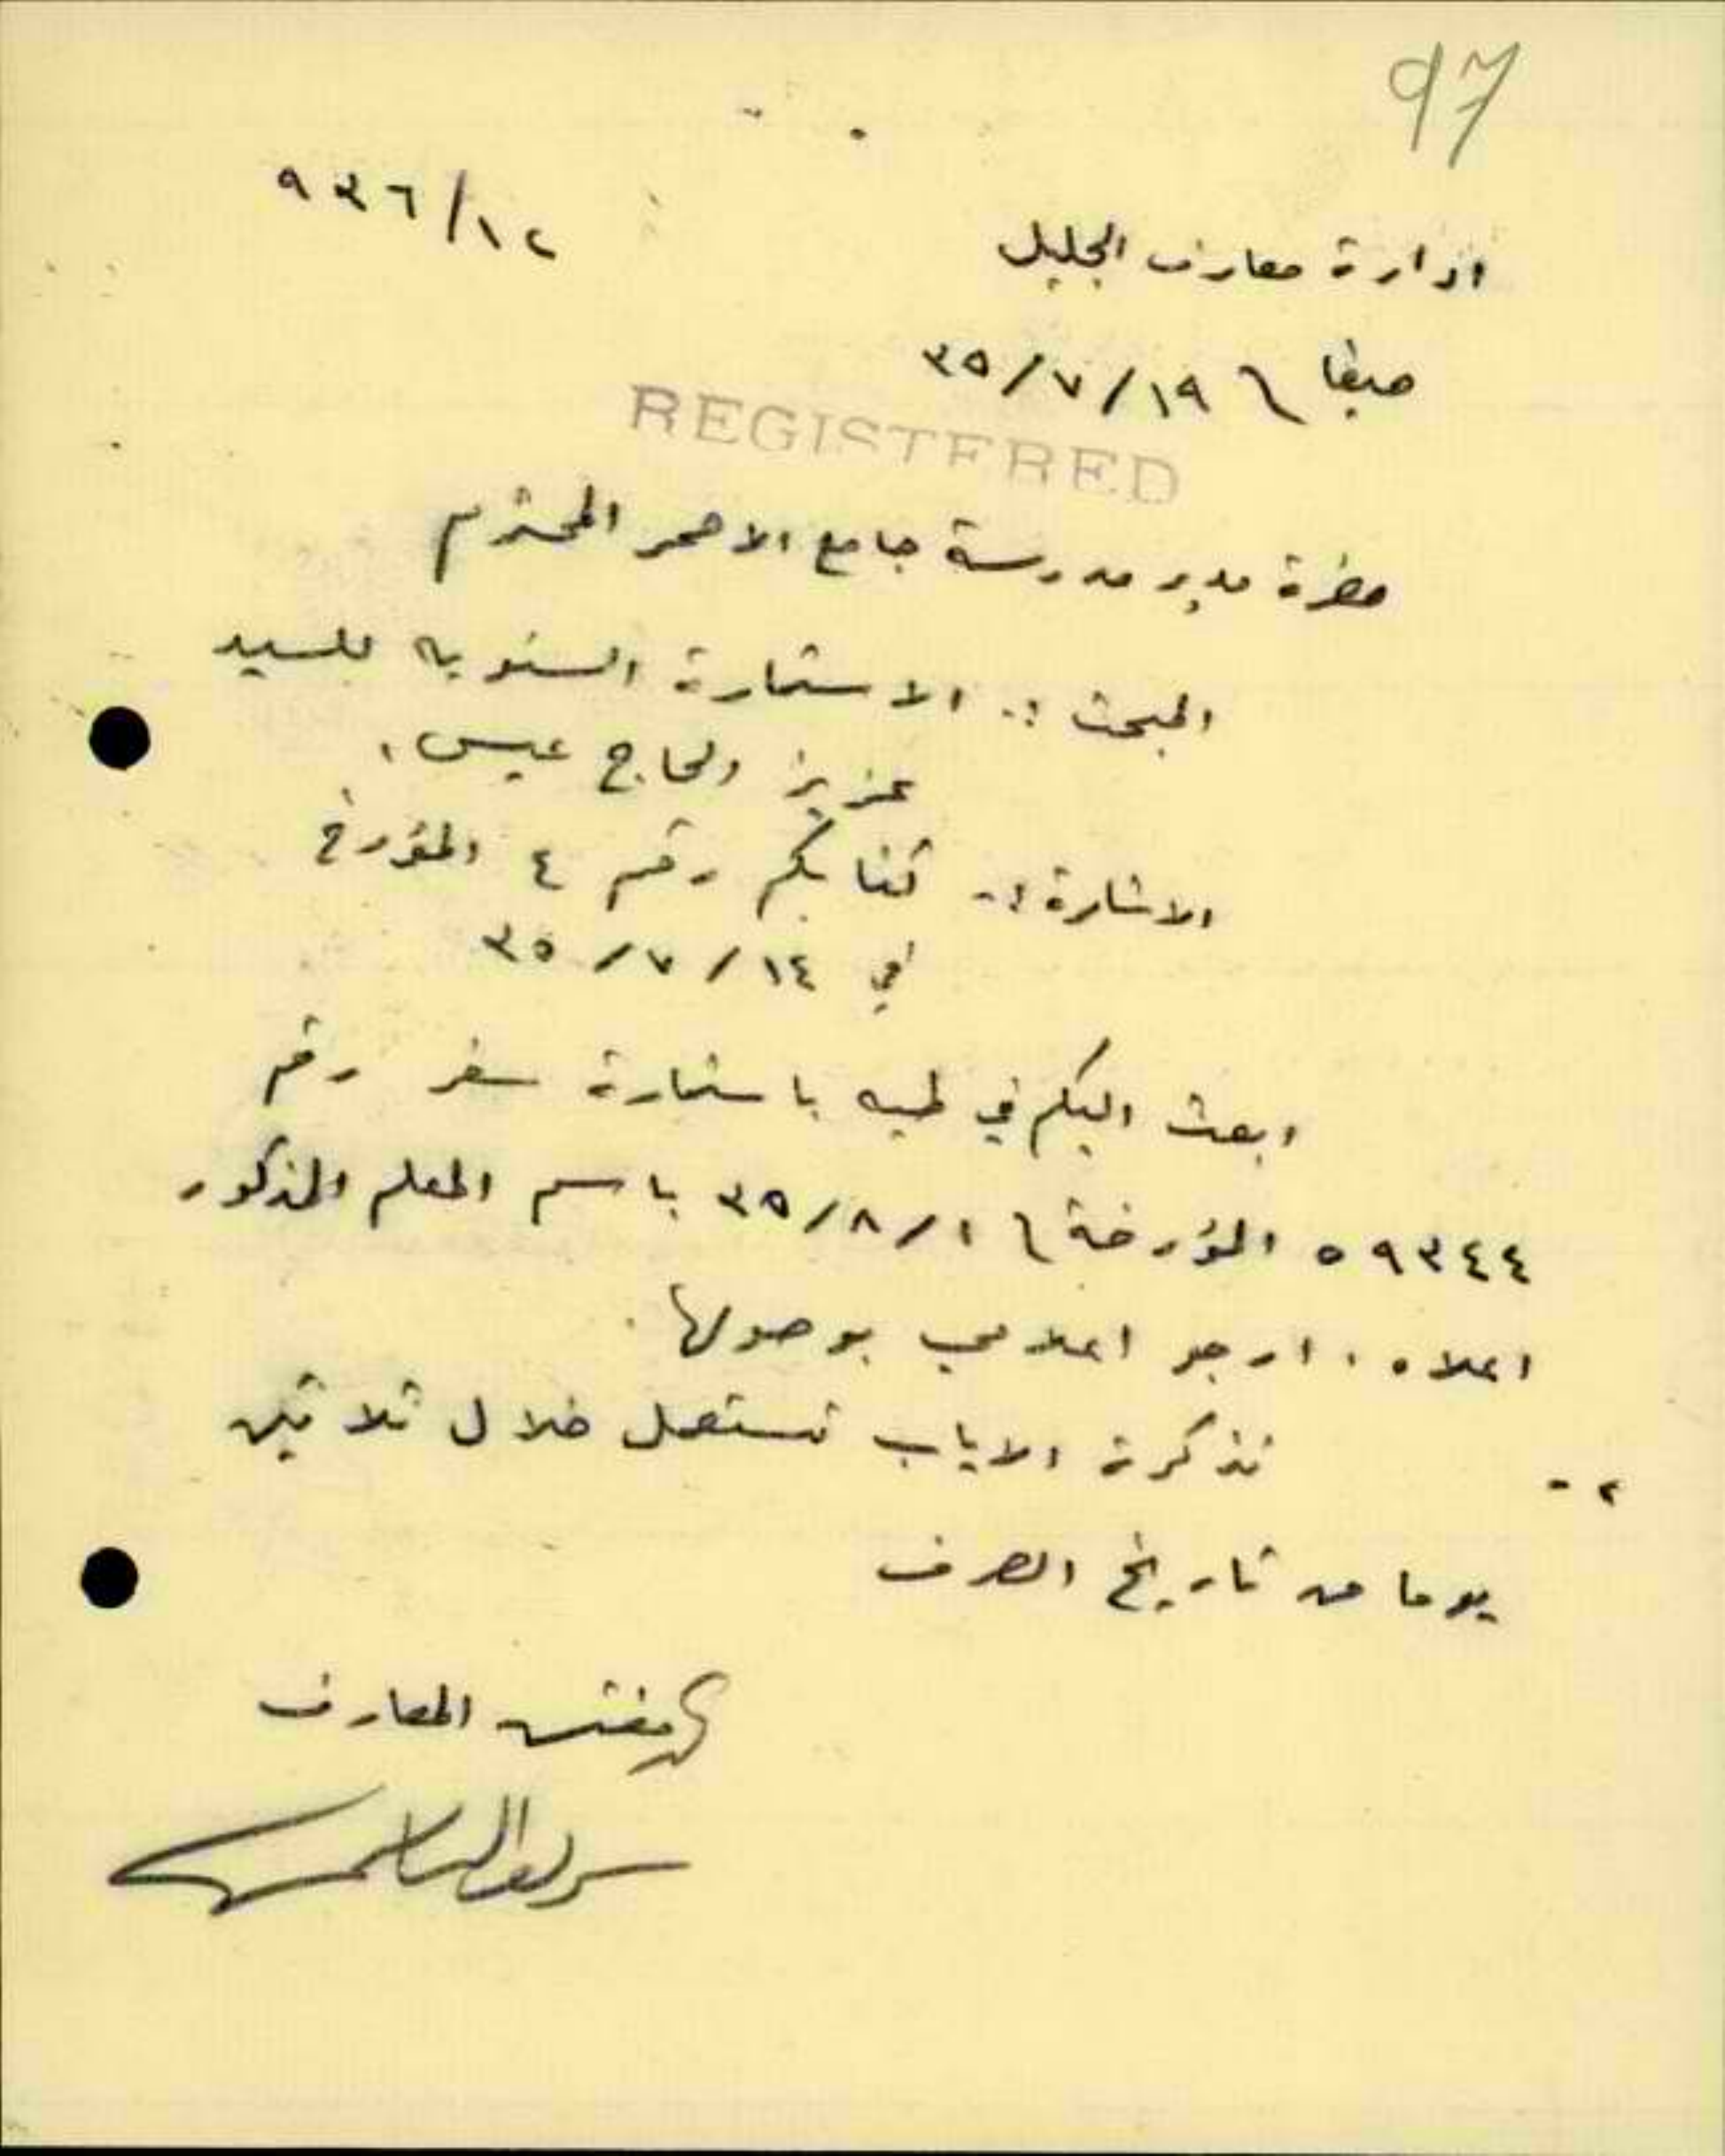 97
٩٣٦/١٢
ادارة معارف الجليل
حيفا في ٣٥/٧/١٩
REGISTERED
حضرة مدير مدرسة جامع الاحمر المحترم
المبحث :- الاستمارة السنوية للسيد
عزيز الحاج عيسى
الاشارة :- كتابكم رقم ٤ المؤرخ
في ٣٥/٧/١٤
ابعث اليكم في طيه باستمارة سفر رقم
٥٩٣٤٤ المؤرخة في ٣٥/٨/١ باسم المعلم المذكور
اعلاه . ارجو اعلامي بوصولها .
٢- تذكرة الاياب تستعمل خلال ثلاثين
يوما من تاريخ الصرف
مفتش المعارف